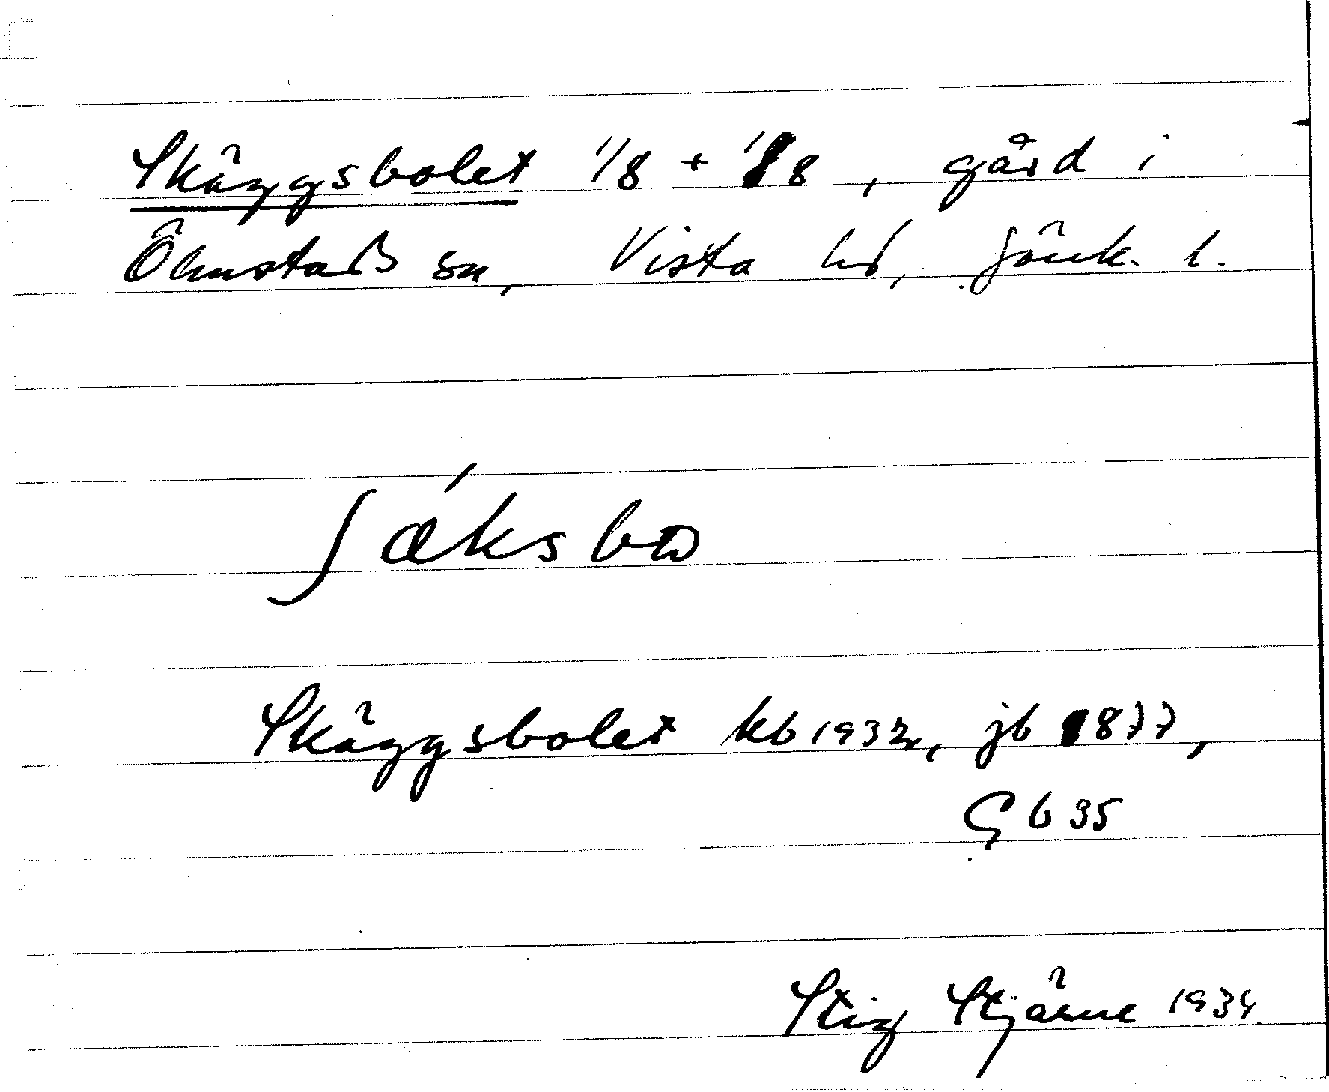 Skäggsbolet 1/8 + 1/8, gård i
Ölmstads sn, Vista hd, Jönk. l.
ʃǽksbω
Skäggsbolet kb 1932, jb 1877,
Gb 35
Stig Stjärne 1934